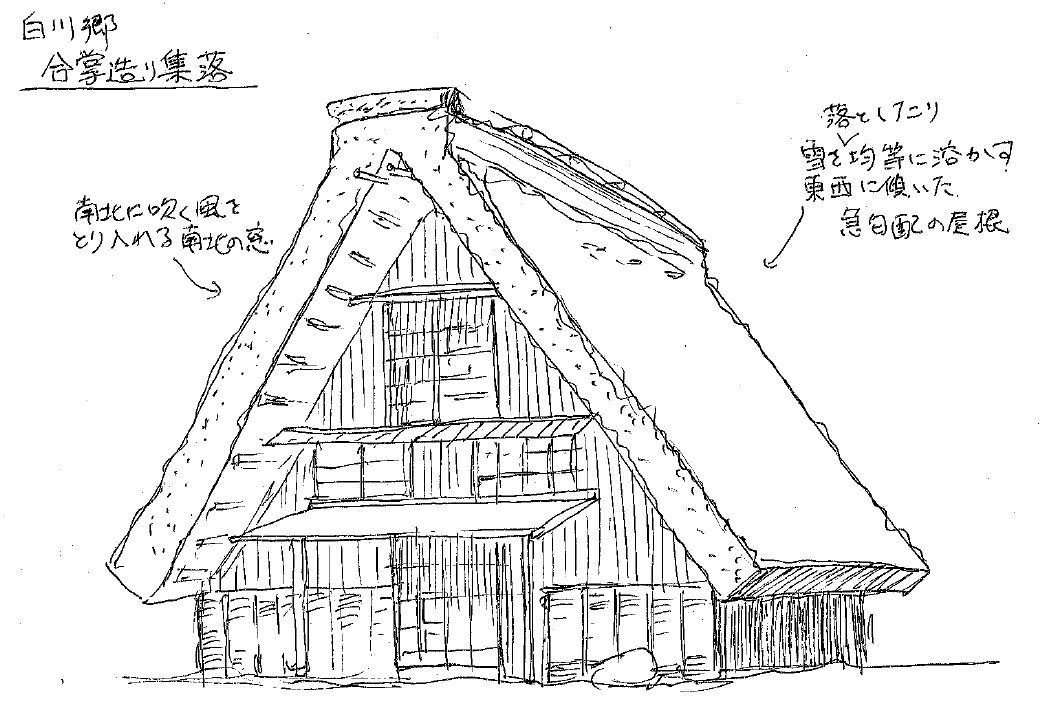 白川郷
合掌造り集落
南北に吹く風を
とり入れる南北の窓
落としたり
雪を均等に溶かす
東西に傾いた
急勾配の屋根